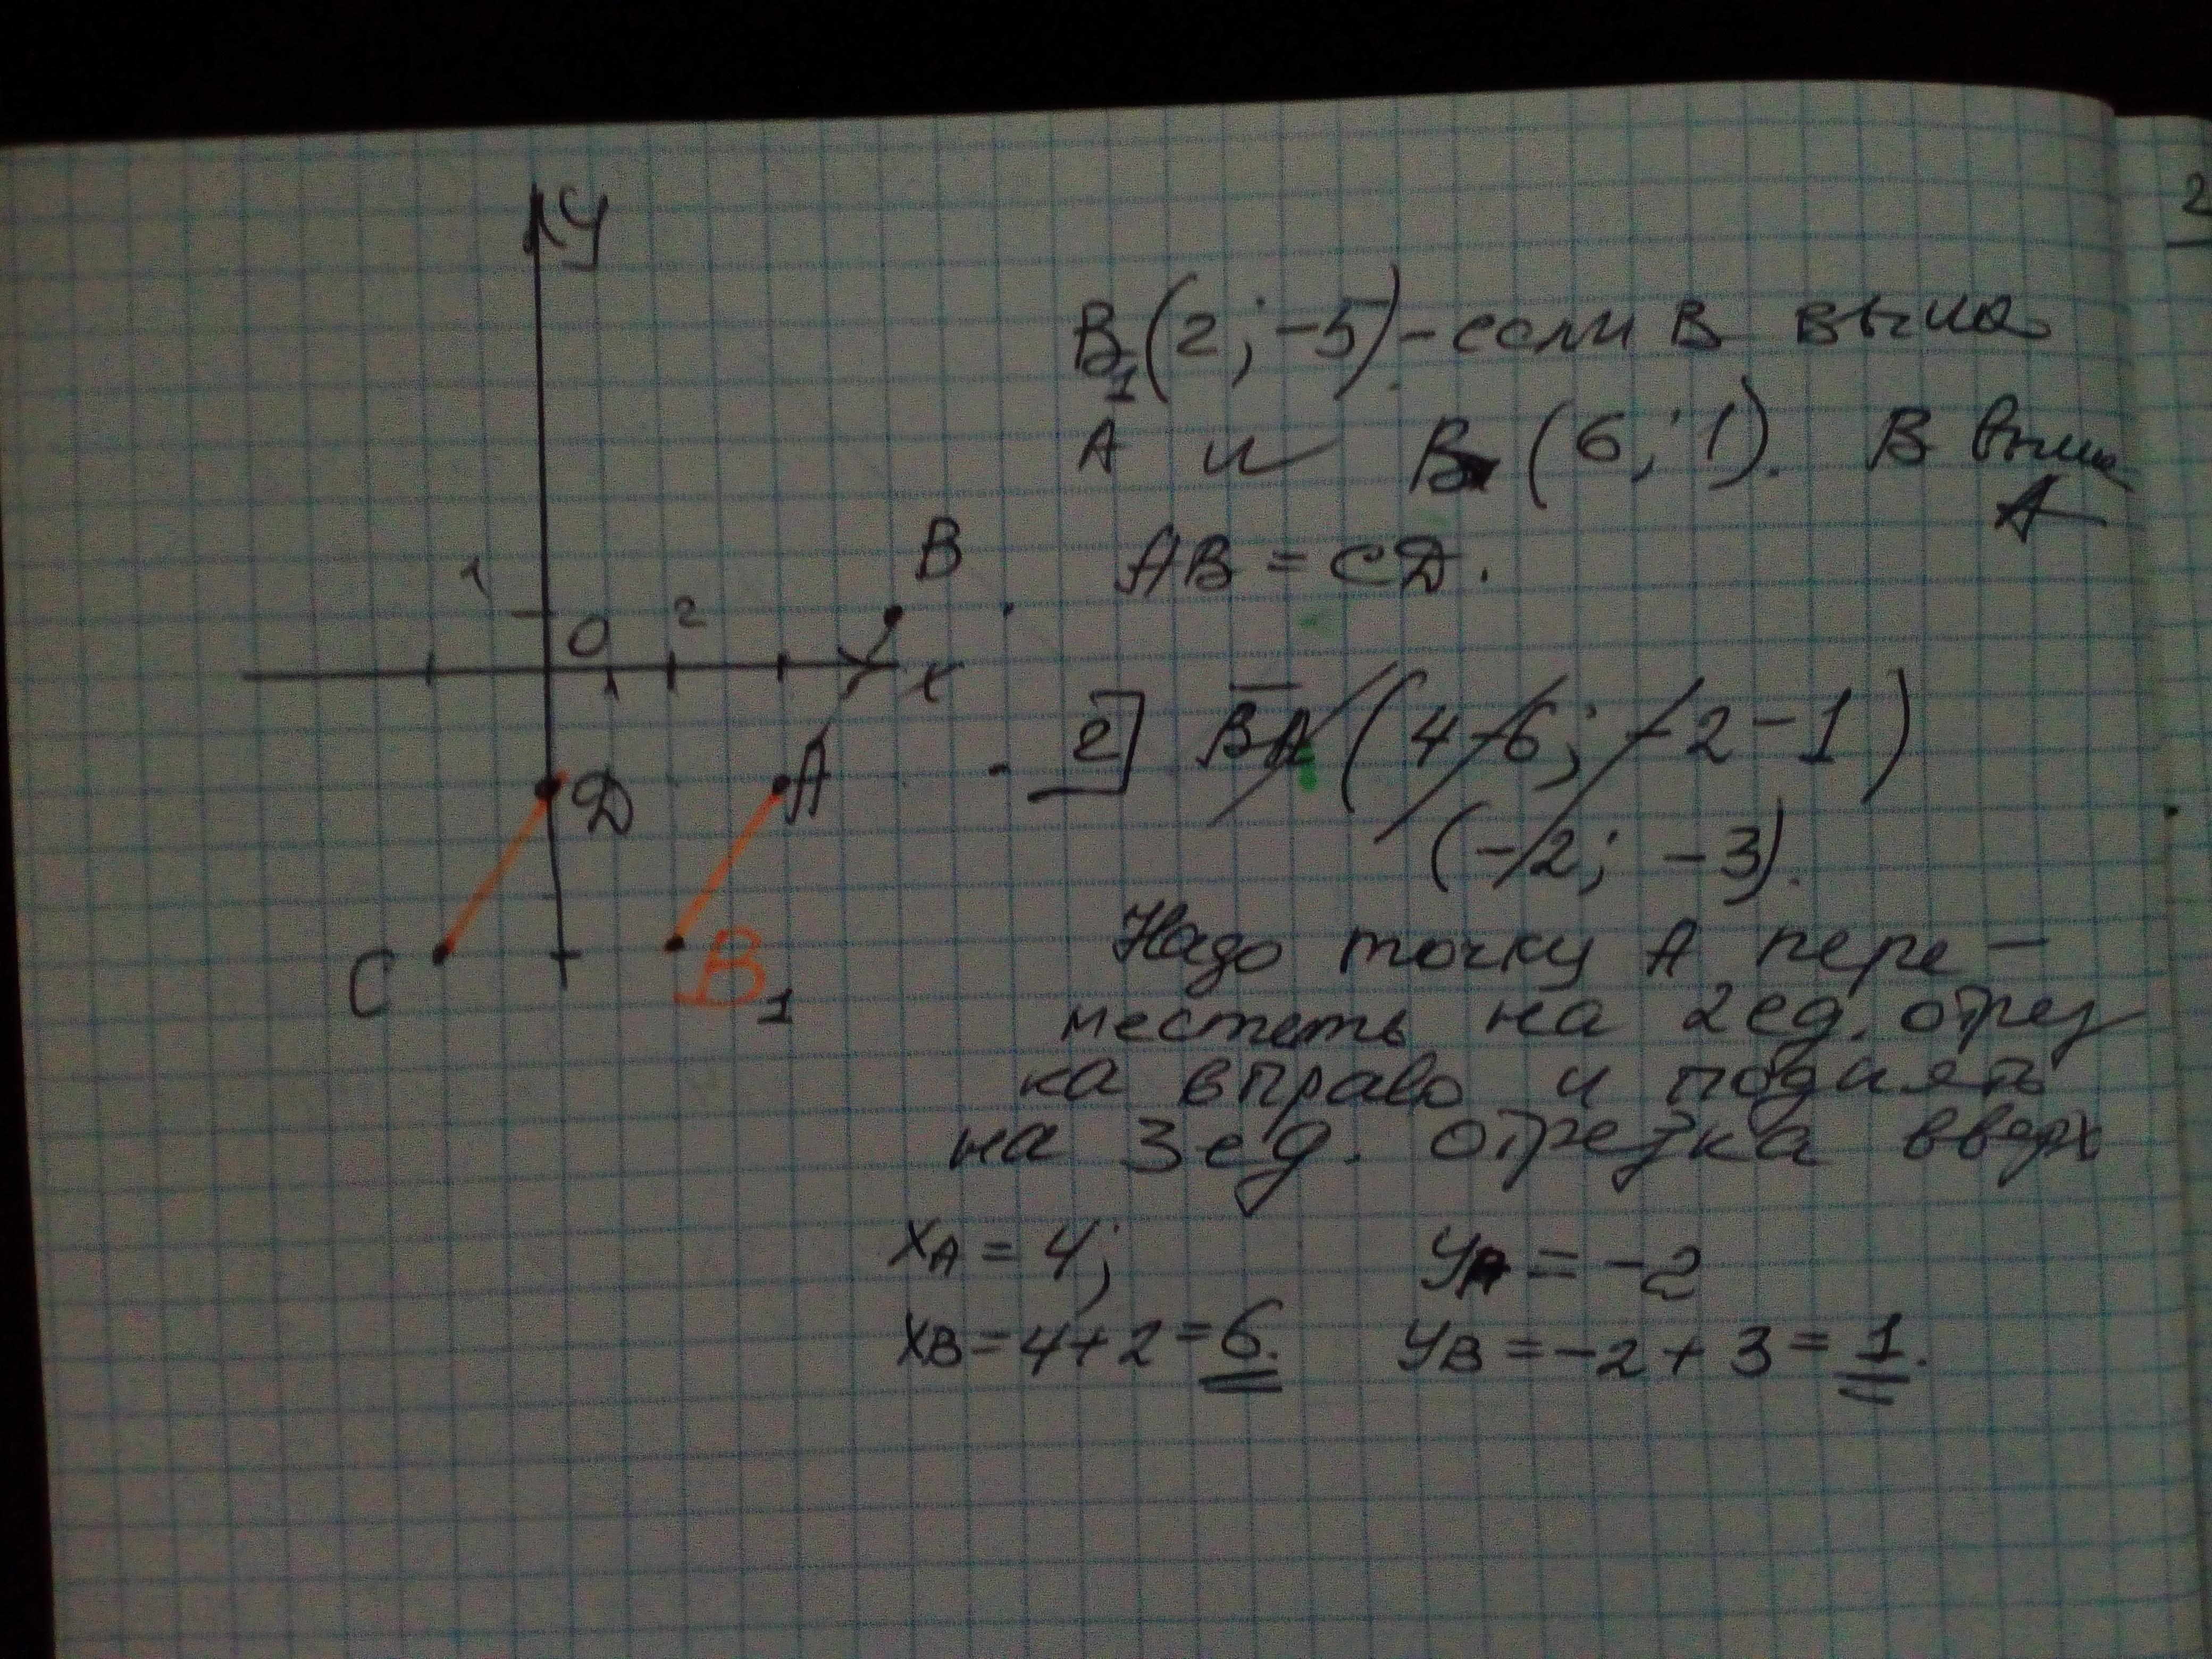 2
У
B₁(2; -5) - если B выше
A и B (6; 1). B выше
A
AB = CD.
B
1
O
2
1
X
г] BA (4-6; -2-1)
(-2; -3).
D
A
C
B₁
Надо точку A пере-
местеть на 2 ед. отрез
ка вправо и поднять
на 3 ед. отрезка вверх
XA = 4; УA = -2
XB = 4+2 = 6. УB = -2 + 3 = 1.